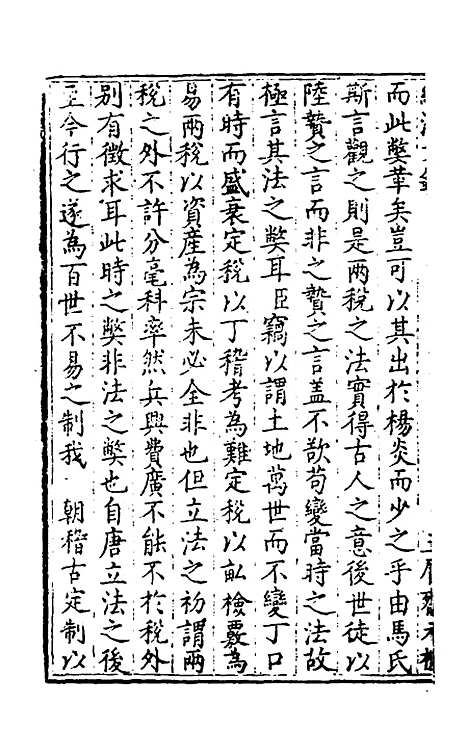 而此弊革矣豈可以其出於楊炎而少之乎由馬氏
斯言觀之則是兩税之法實得古人之意後世徒以
陸贄之言而非之贄之言盖不欲苟變當時之法故
極言其法之弊耳臣竊以謂土地萬世而不變丁口
有時而盛衰定税以丁稽考為難定税以畝檢覈為
易兩税以資產為宗未必全非也但立法之初謂兩
税之外不許分毫科率然兵興費廣不能不於税外
別有徵求耳此時之弊非法之弊也自唐立法之後
至今行之遂為百世不易之制我 朝稽古定制以